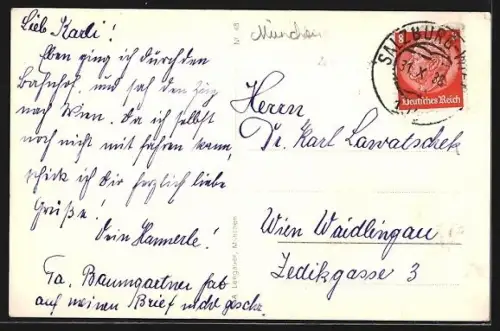 Lieb Karli!
Eben ging ich durch den
Bahnhof und sah den Zug
nach Wien. Da ich selbst
noch nicht mit fahren kann,
schick ich dir herzlich liebe
Grüße!
Dein Hannerle!
Fa. Baumgartner hab
auf meinen Brief nicht
München
SALZBURG
31. X.
Deutsches Reich
8
Herrn
Dr. Karl Lawatschek
Wien Waidlingau
Zedikgasse 3
München